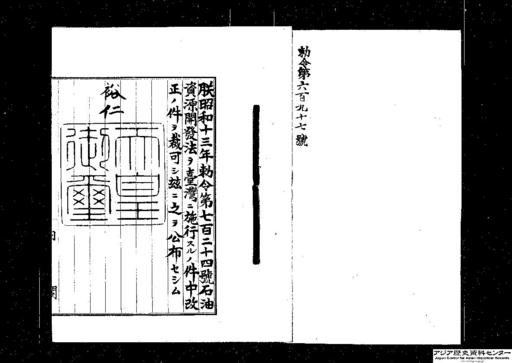 勅令第六百九十七號
朕昭和十三年勅令第七百二十四號石油
資源開發法ヲ臺灣ニ施行スルノ件中改
正ノ件ヲ裁可シ玆ニ之ヲ公布セシム
裕仁
天皇
御璽
内閣
アジア歴史資料センター
Japan Center for Asian Historical Records